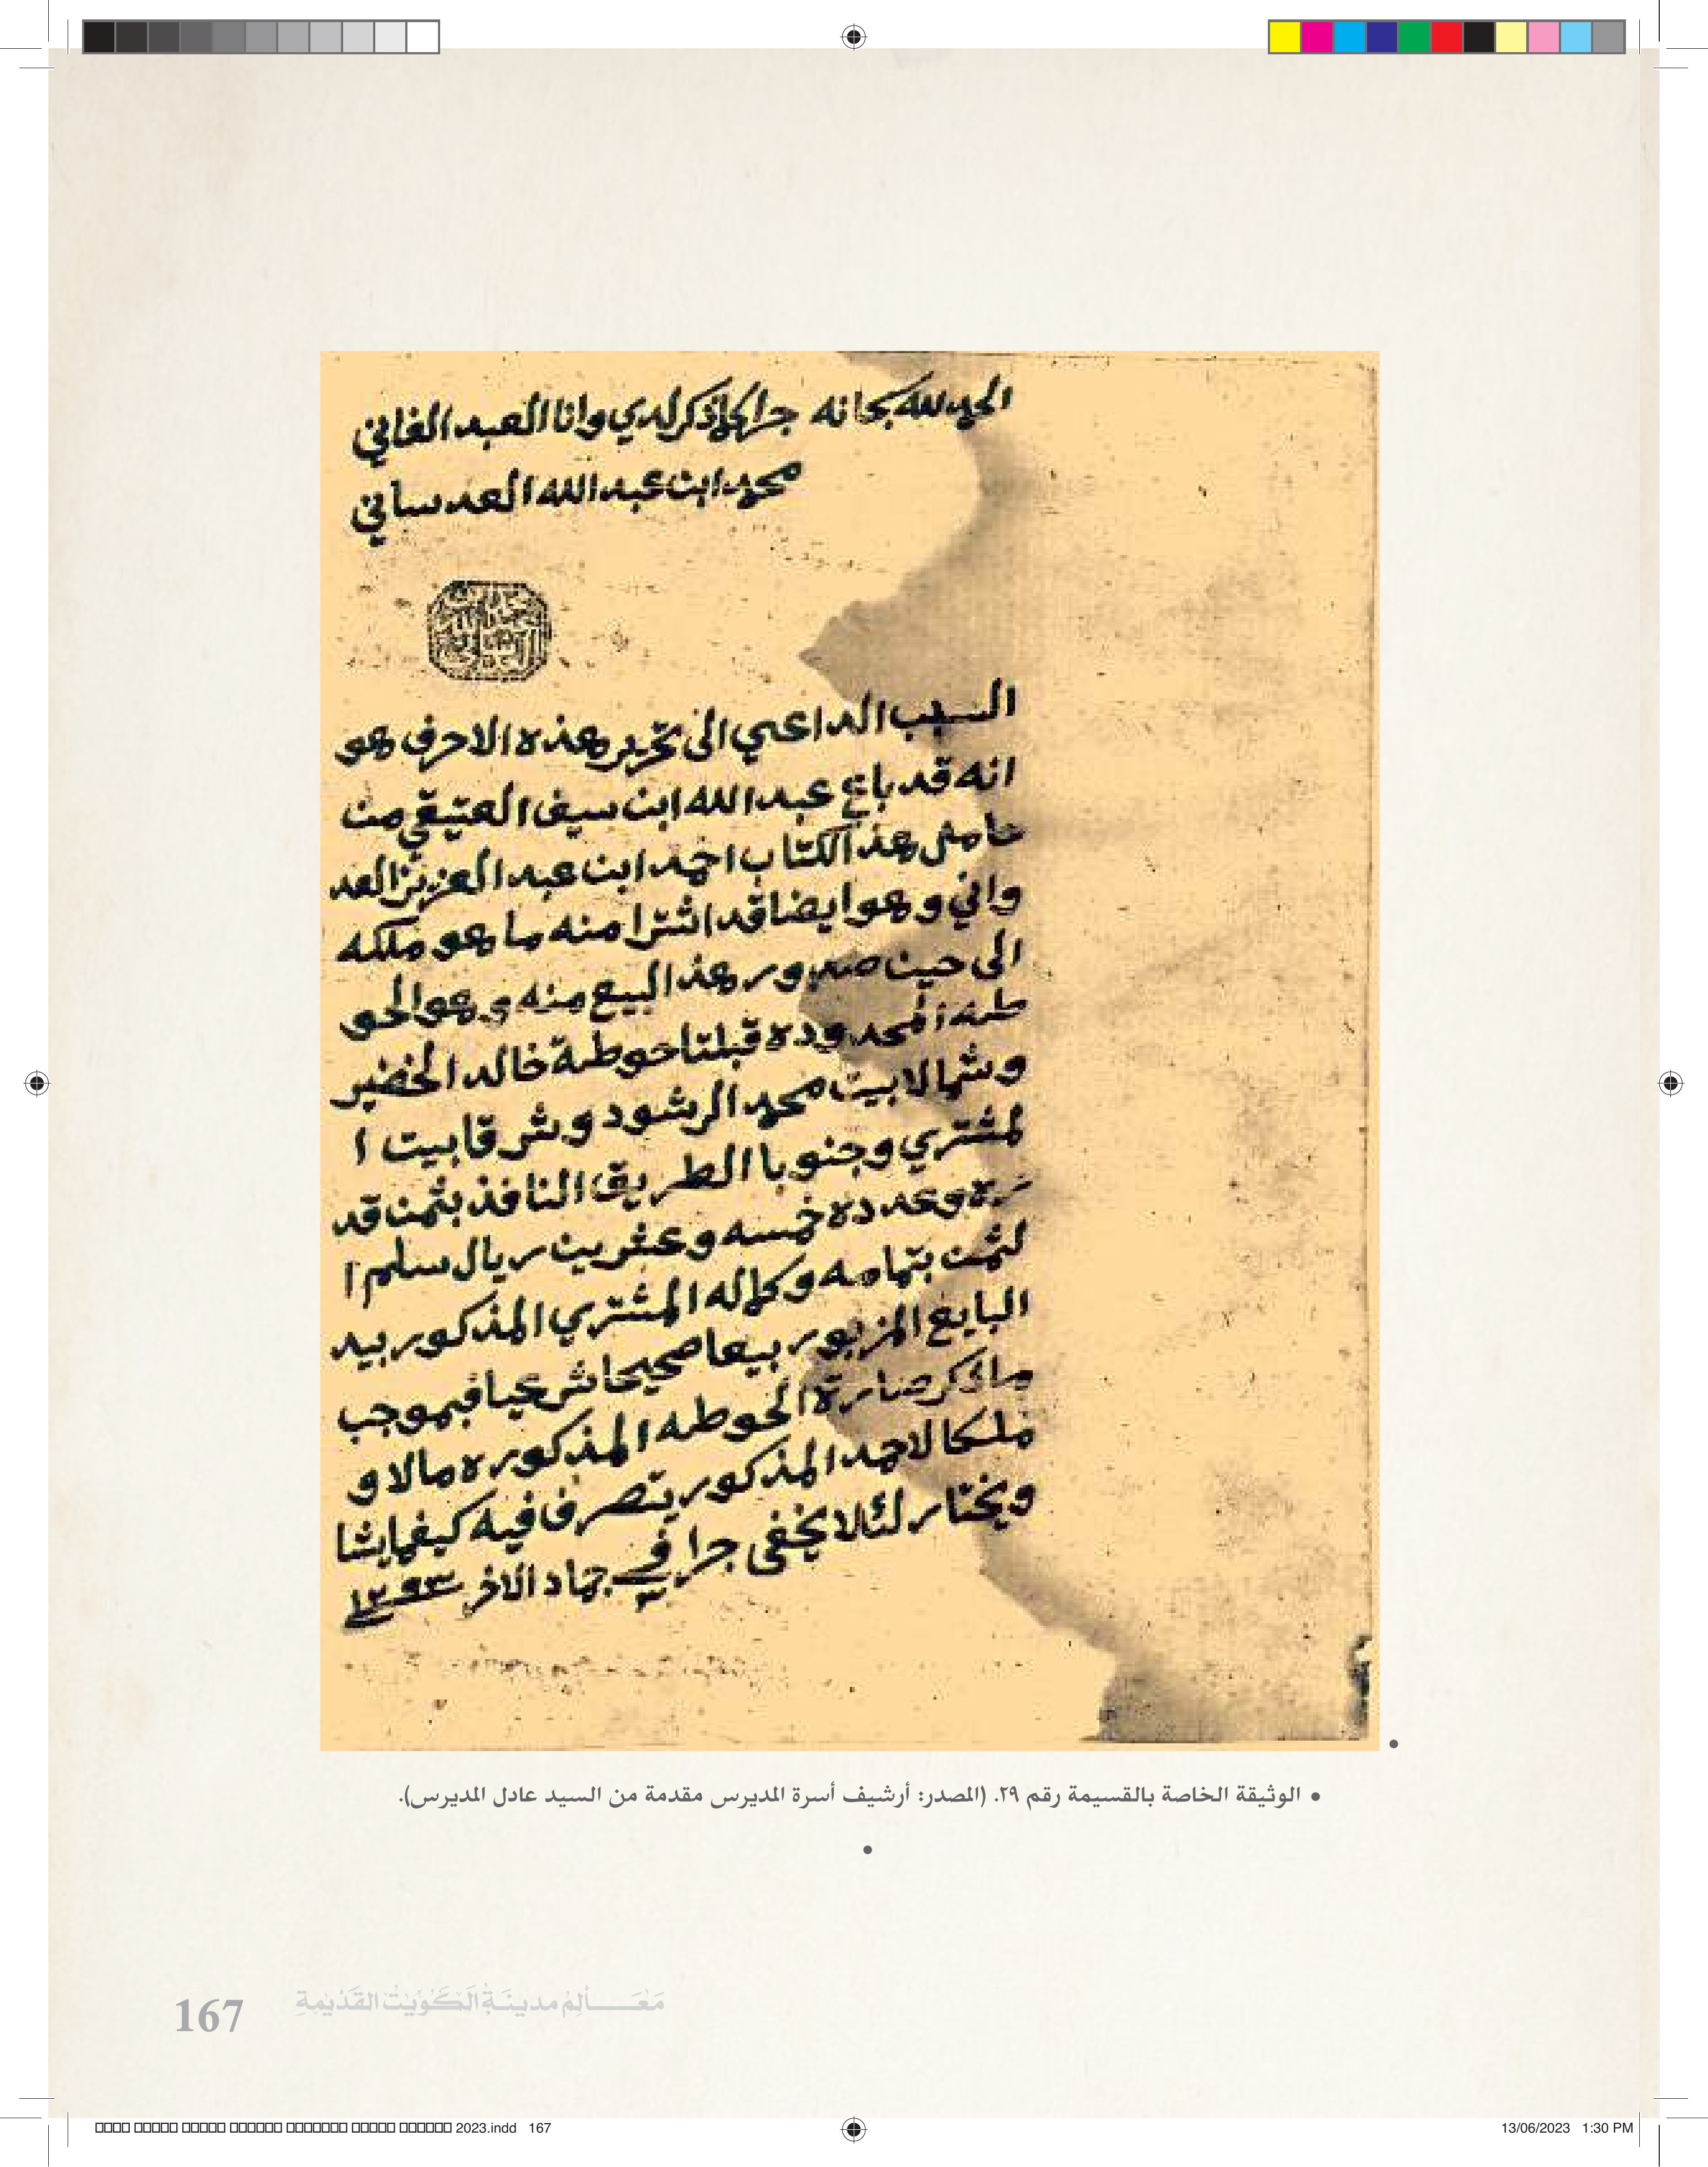 الحمد لله سبحانه جرا كما ذكر لدي وانا العبد الفاني
محمد ابن عبد الله العدساني
السبب الداعي الى تحرير هذه الاحرف هو
انه قد باع عبد الله ابن سيف العتيقي من
حامل هذا الكتاب احمد ابن عبد العزيز العد
واني وهو ايضا قد اشترا منه ما هو ملكه
الى حين صدور هذا البيع منه وهو الحو
طه المحدوده قبلتا حوطة خالد الخضير
وشمالا بيت محمد الرشود وشرقا بيت ا
لمشتري وجنوبا الطريق النافذ بثمن قد
ره وعدده خمسه وعشرين ريال سلم ا
لثمن بتمامه وكماله المشتري المذكور بيد
البايع المزبور بيعا صحيحا شرعيا فبموجب
ماذكر صارة الحوطه المذكوره مالا و
ملكا لاحمد المذكور يتصرف فيه كيفما يشا
ويختار لئلا يخفى جرا في جماد الاخر ١٢٩٣
• الوثيقة الخاصة بالقسيمة رقم ٢٩. (المصدر: أرشيف أسرة المديرس مقدمة من السيد عادل المديرس).
167 مَعَالِمُ مدينَةِ الكُوَيْتْ القَدْيمَةِ
2023.indd 167
13/06/2023 1:30 PM